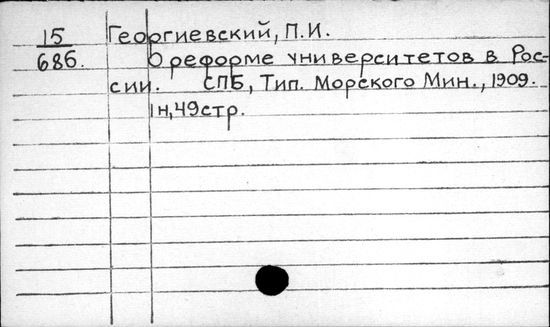 15 Георгиевский, П.И.
686. О реформе университетов в Рос-
сии. СПБ, Тип. Морского Мин., 1909.
1н, 49стр.